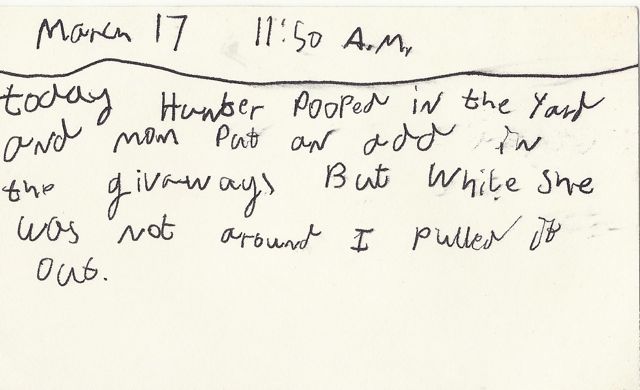 March 17 11:50 A.M.
today Hunter Pooped in the Yard
and mom Put an add in
the givaways But White she
was not around I pulled It
out.